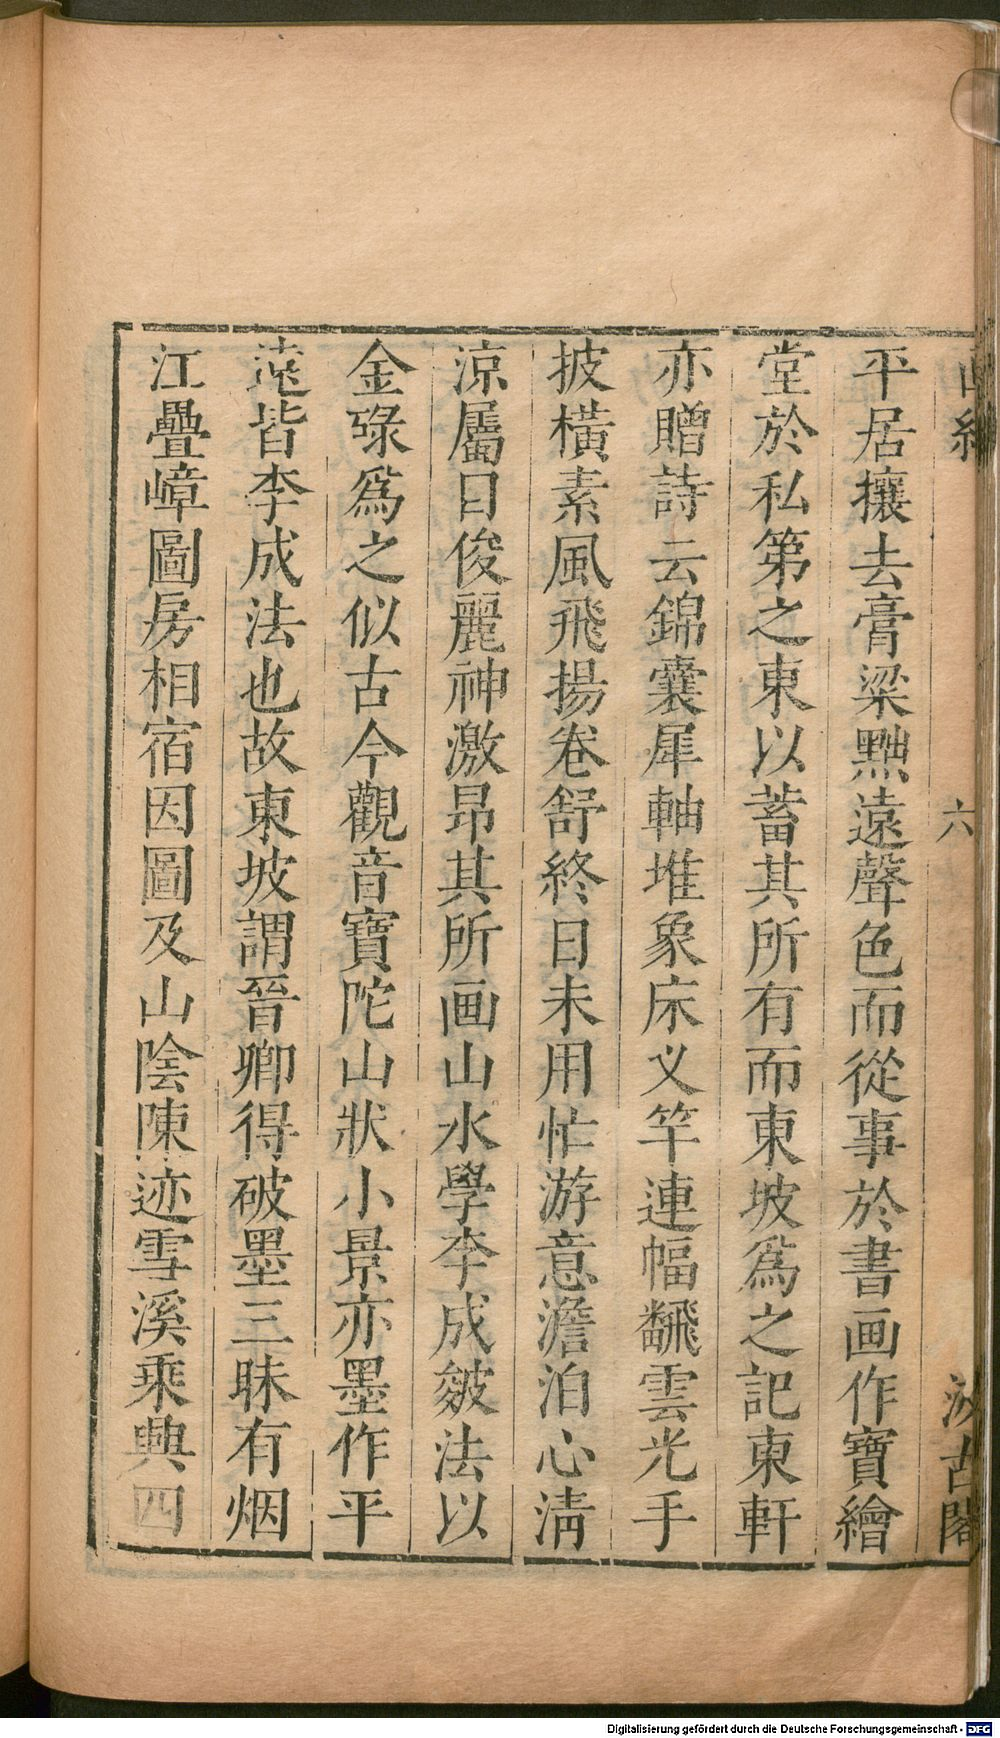 六
汲古閣
平居攘去膏粱黜遠聲色而從事於書画作寶繪
堂於私第之東以蓄其所有而東坡爲之記東軒
亦贈詩云錦囊犀軸堆象床义竿連幅翻雲光手
披橫素風飛揚卷舒終日未用忙游意澹泊心淸
涼屬目俊麗神激昂其所画山水學李成皴法以
金碌爲之似古今觀音寶陀山狀小景亦墨作平
遠皆李成法也故東坡謂晉卿得破墨三昧有烟
江疊嶂圖房相宿因圖及山陰陳迹雪溪乘興四
Digitalisierung gefördert durch die Deutsche Forschungsgemeinschaft - DFG